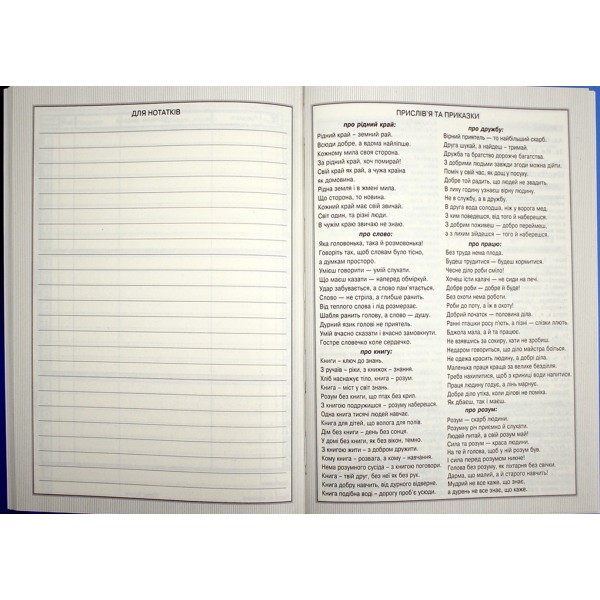 ДЛЯ НОТАТКІВ
ПРИСЛІВ'Я ТА ПРИКАЗКИ
про рідний край:
Рідний край – земний рай.
Всюди добре, а вдома найліпше.
Кожному мила своя сторона.
За рідний край, хоч помирай!
Свій край як рай, а чужа країна
як домовина.
Рідна земля і в жмені мила.
Що сторона, то новина.
Кожний край має свій звичай.
Світ один, та різні люди.
В чужім краю звичаю не знаю.
про слово:
Яка головонька, така й розмовонька!
Говоріть так, щоб словам було тісно,
а думкам просторо.
Умієш говорити – умій слухати.
Що маєш казати — наперед обміркуй.
Удар забувається, а слово пам'ятається.
Слово — не стріла, а глибше ранить.
Від теплого слова і лід розмерзає.
Шабля ранить голову, а слово — душу.
Дурний язик голові не приятель.
Умій вчасно сказати і вчасно замовкнути.
Гостре словечко коле сердечко.
про книгу:
Книги – ключ до знань.
З ручаїв – ріки, а з книжок – знання.
Хліб наснажує тіло, книга – розум.
Книга – міст у світ знань.
Розум без книги, що птах без крил.
З книгою подружишся – розуму наберешся.
Одна книга тисячі людей навчає.
Книга для дітей, що волога для полів.
Дім без книги – день без сонця.
У домі без книги, як без вікон, темно.
З книгою жити – з добром дружити.
Кому книга – розвага, а кому – навчання.
Нема розумного сусіда – з книгою поговори.
Книга – твій друг, без неї як без рук.
Книга добру навчить, від дурного відверне.
Книга подібна воді – дорогу проб'є усюди.
про дружбу:
Вірний приятель — то найбільший скарб.
Друга шукай, а найдеш – тримай.
Дружба та братство дорожче багатства.
З добрими людьми завжди згоди можна дійти.
Поміч у свій час, як дощ у посуху.
Добре той радить, що людей не звадить.
В лиху годину узнаєш вірну людину.
Не в службу, а в дружбу.
В друга вода солодша, ніж у ворога мед.
З ким поведешся, від того й наберешся.
З добрим поживеш — добро переймеш,
а з лихим зійдешся — того й наберешся.
про працю:
Без труда нема плода.
Будеш трудитися — будеш кормитися.
Чесне діло роби сміло!
Хочеш їсти калачі — не сиди на печі.
Добре роби — добре й буде!
Без охоти нема роботи.
Роби до поту, а їж в охоту!
Добрий початок — половина діла.
Ранні пташки росу п'ють, а пізні — слізки ллють.
Бджола мала, а й та працює.
Не взявшись за сокиру, хати не зробиш.
Недаром говориться, що діло майстра боїться.
Не одежа красить людину, а добрі діла.
Маленька праця краща за велике безділля.
Треба нахилитися, щоб з криниці води напитися.
Праця людину годує, а лінь марнує.
Добре діло утіха, коли ділові не поміха.
Як дбаєш, так і маєш.
про розум:
Розум — скарб людини.
Розумну річ приємно й слухати.
Людей питай, а свій розум май!
Сила та розум — краса людини.
На те й голова, щоб у ній розум був.
І сила перед розумом никне!
Голова без розуму, як ліхтарня без свічки.
Дарма, що малий, а й старого навчить!
Мудрий не все каже, що знає,
а дурень не все знає, що каже.